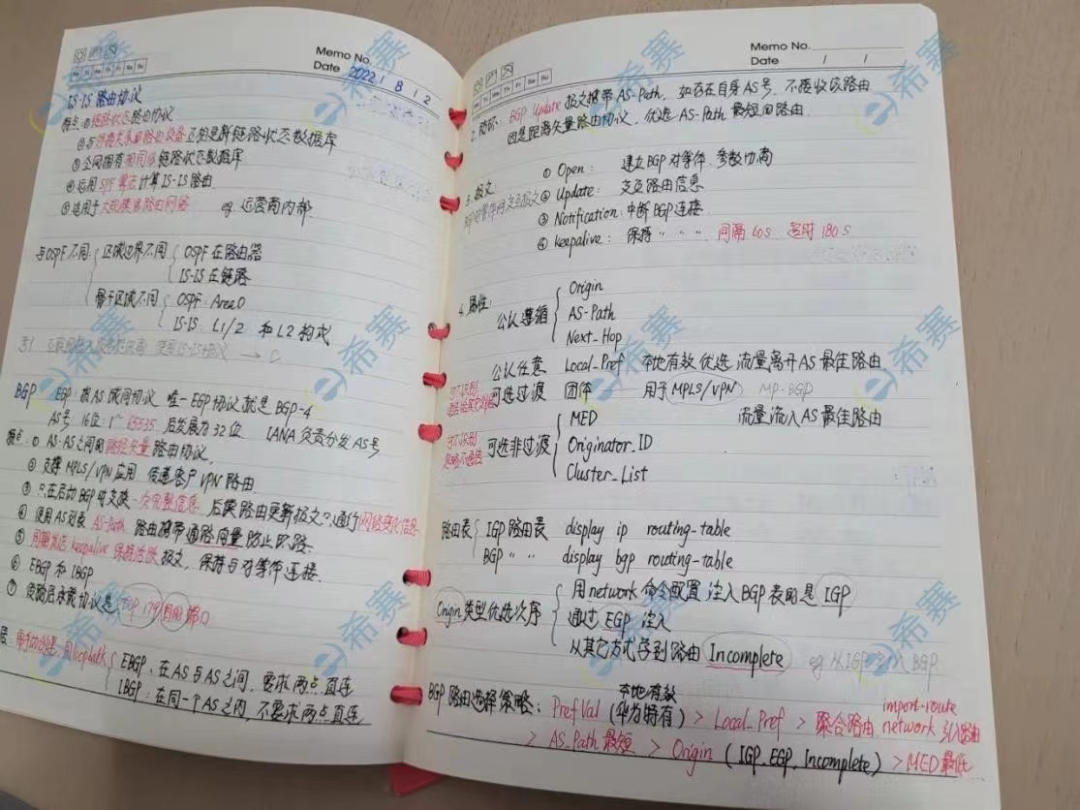 Memo No.
Date 2022.1 8 1 2
IS-IS 路由协议
特点:①链路状态路由协议
②与邻居关系的路由设备还相更新链路状态数据库
③全网拥有相同的链路状态数据库
④运用SPF算法计算IS-IS路由
⑤适用于大规模 路由网络 eg 运营商内部.
与OSPF不同: 区域边界不同 OSPF在路由器
IS-IS在链路
骨干区域不同 OSPF: Area 0
IS-IS: L1/2 和 L2 构成
BGP EGP 唯一EGP协议就是BGP-4
AS号 16位 1~65535. 后发展为32位. IANA负责分发AS号
特点:① AS-AS之间的路径矢量路由协议.
② 支撑MPLS/VPN应用 传递客户VPN路由.
③ 只在启动BGP时交换一次完整信息. 后续路由更新报文只通行网络变化信息.
④ 使用AS列表 AS-Path. 路由携带通路向量防止环路.
⑤ 周期发送keepalive 保持活跃报文, 保持与对等体连接.
⑥ EBGP和IBGP
⑦ 负责承载协议是 TCP 179 端口
EBGP: 在AS与AS之间, 要求两点直连
IBGP: 在同一个AS之内, 不要求两点直连
Memo No.
Date / /
2. 防环: BGP Update报文携带AS-Path, 如存在自身AS号, 不接收该路由
因是距离矢量路由协议, 优选AS-Path最短的路由.
3. 报文: ① Open: 建立BGP对等体, 参数协商
② Update: 交互路由信息
③ Notification: 中断BGP连接.
④ keepalive: 保持 〃 〃 〃 间隔60s. 超时180s
4. 属性: 公认遵循 Origin
AS-Path
Next_Hop
公认任意 Local_Pref 本地有效 优选 流量离开AS最佳路由.
可选过渡 团体 用于MPLS/VPN MP-BGP
可选非过渡 MED 流量流入AS最佳路由
Originator_ID
Cluster_List
路由表 IGP路由表 display ip routing-table
BGP 〃 〃 display bgp routing-table
Origin类型优选次序 用network命令配置 注入BGP表的是IGP
通过EGP注入
从其它方式学到路由 Incomplete eg 从IGP引入BGP
BGP路由选择策略: PrefVal (华为特有) 本地有效 > Local_Pref > 聚合路由 network import-route 引入路由
> AS_Path最短 > Origin (IGP, EGP, Incomplete) > MED最低
希赛
希赛
希赛
希赛
希赛
希赛
希赛
希赛
希赛